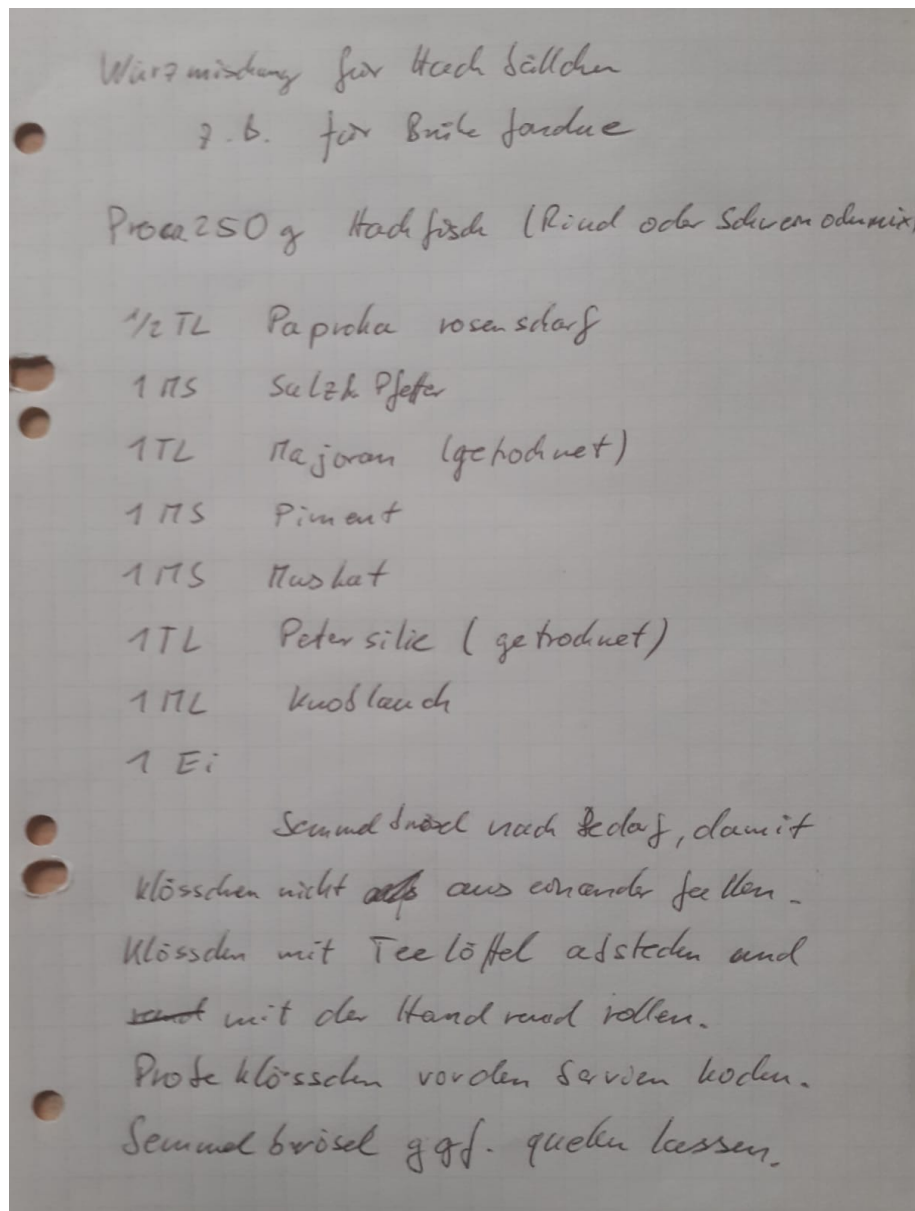 Würzmischung für Hackbällchen
z.B. für Brühefondue
Pro ca 250 g Hackfisch (Rind oder Schwein oder mix)
1/2 TL Paprika rosenscharf
1 MS Salz & Pfeffer
1 TL Majoran (getrocknet)
1 MS Piment
1 MS Muskat
1 TL Petersilie (getrocknet)
1 ML Knoblauch
1 Ei
Semmelbrösel nach Bedarf, damit
Klösschen nicht auseinander fallen.
Klösschen mit Teelöffel abstechen und
mit der Hand rund rollen.
Probeklösschen vor den Servieren kochen.
Semmelbrösel ggf. quellen lassen.